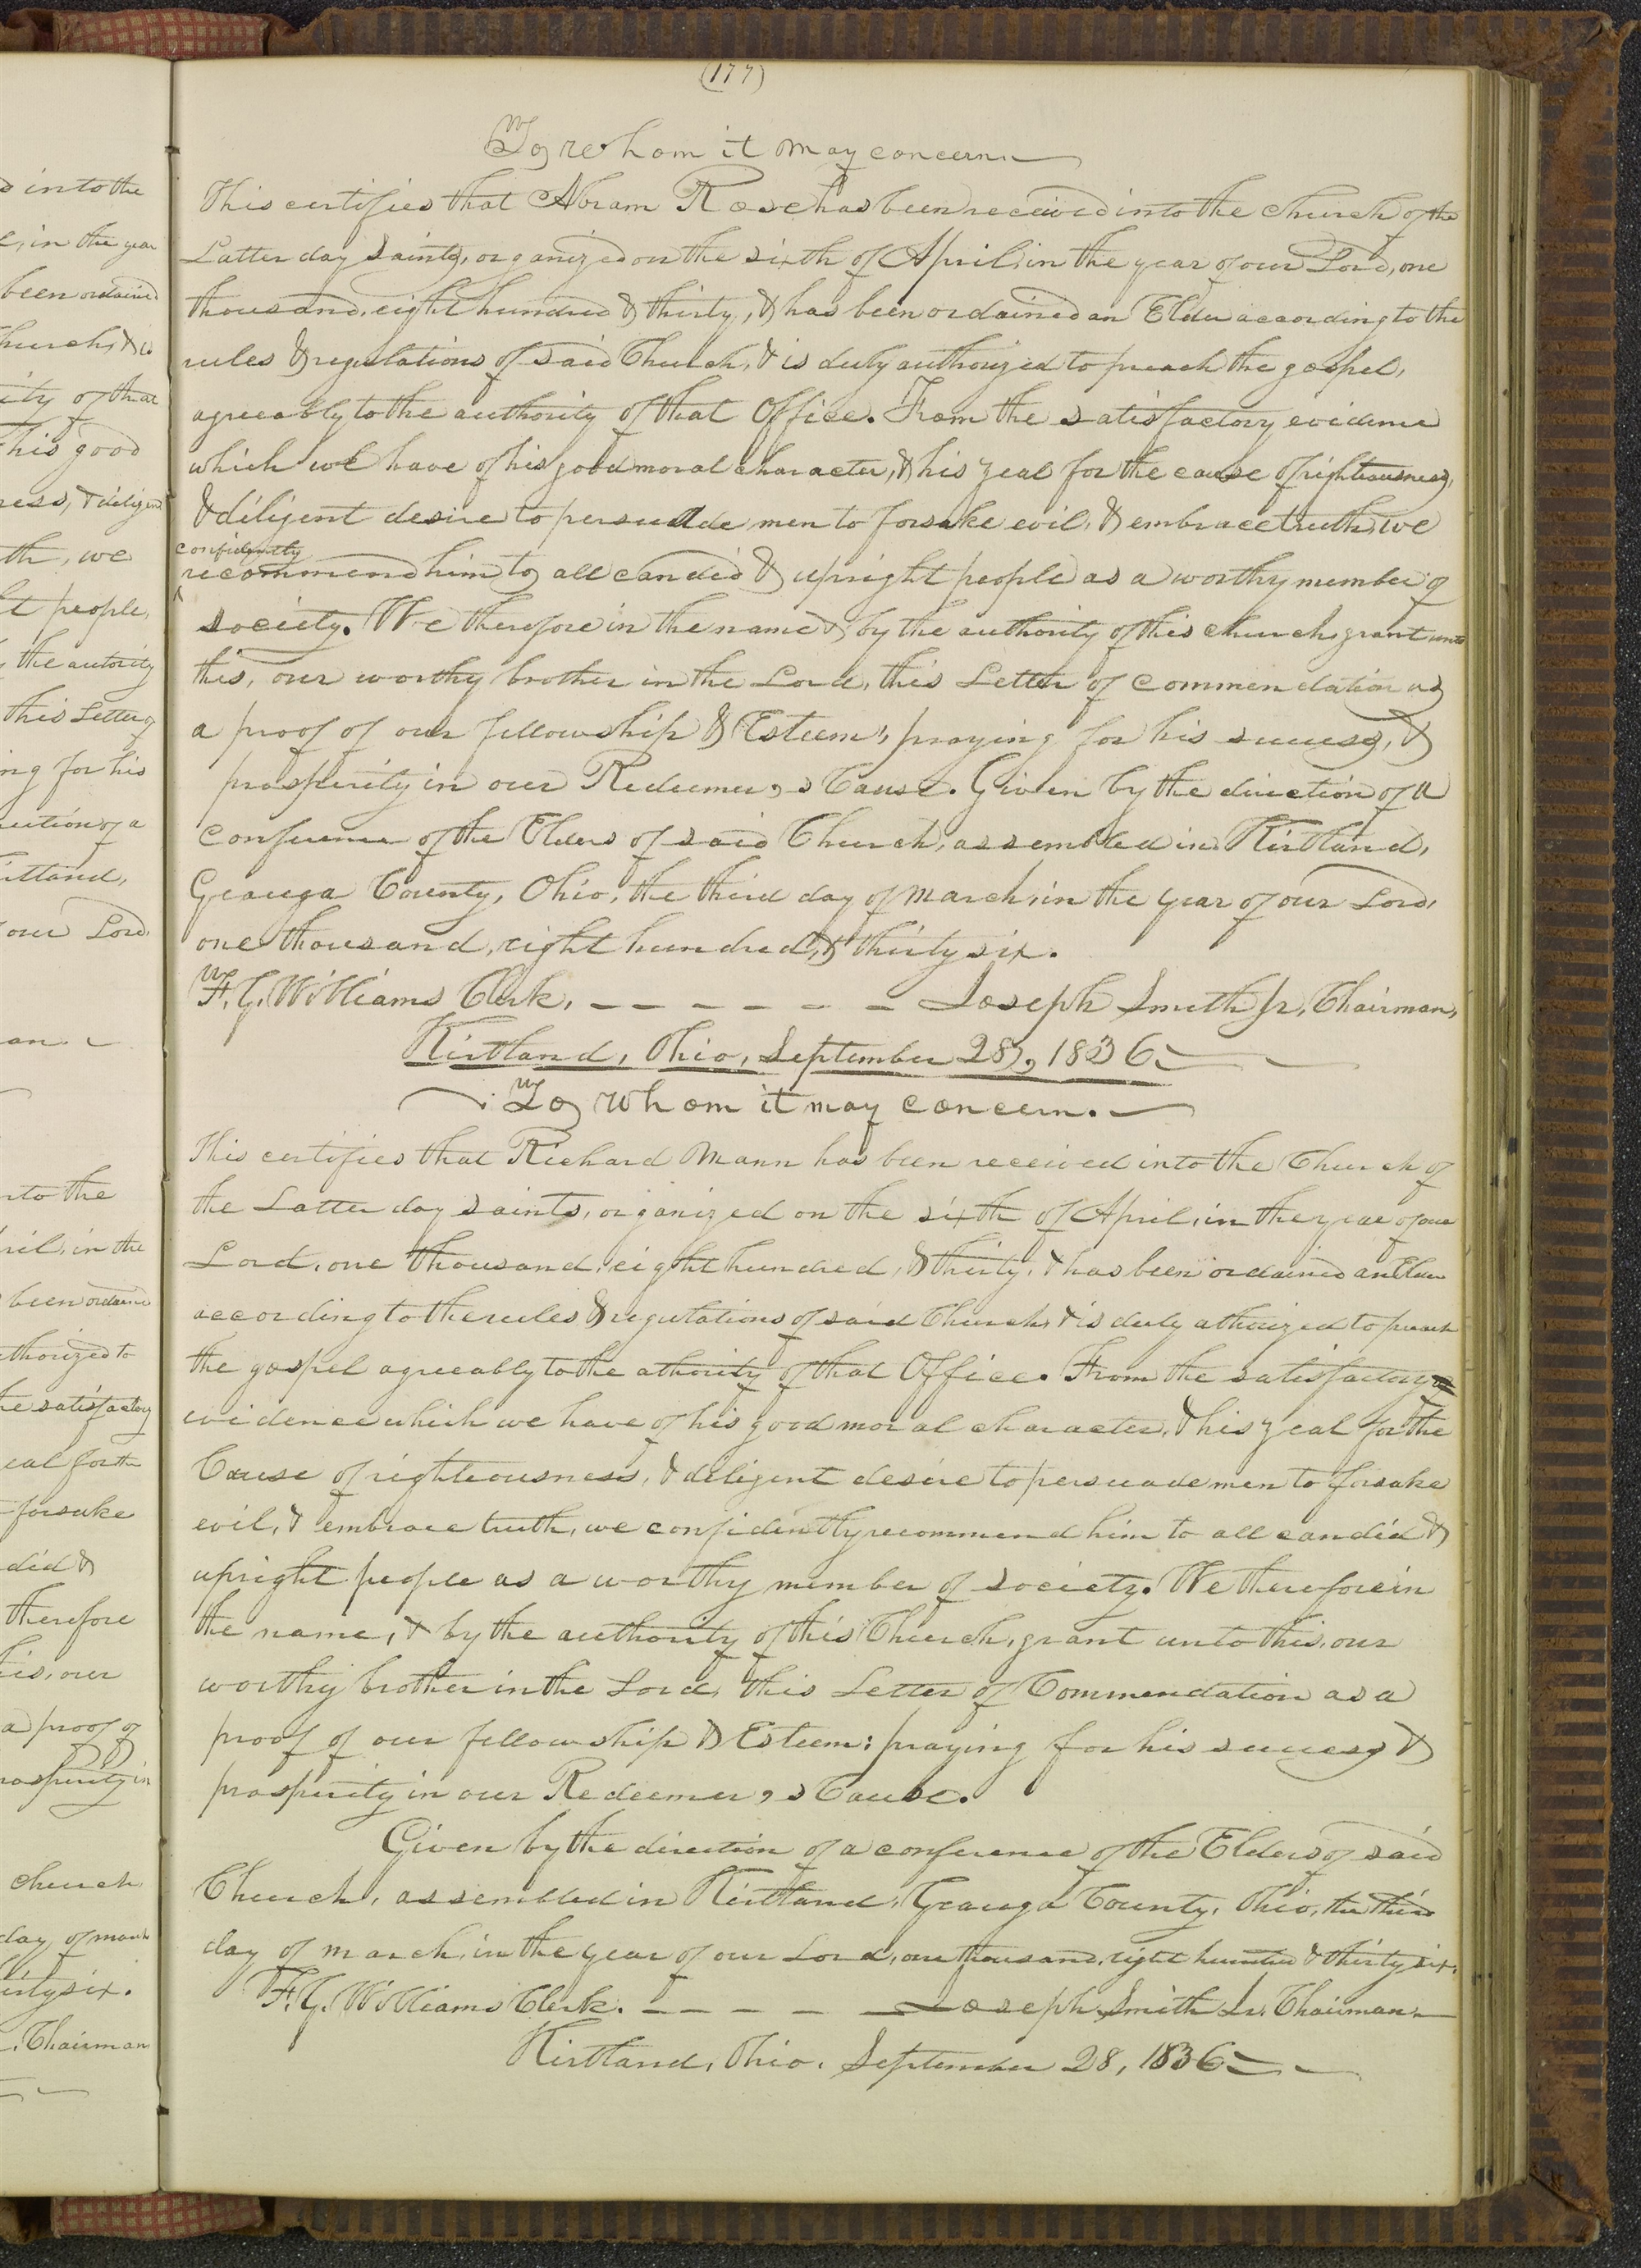 (177)
To whom it may concern
This certifies that Abram Rose has been received into the church of the
Latter day saints, organized on the sixth of April, in the year of our Lord, one
thousand, eight hundred & thirty, & has been ordained an Elder according to the
rules & regulations of said Church, & is duly authorized to preach the gospel,
agreeably to the authority of that Office. From the satisfactory evidence
which we have of his good moral character, & his zeal for the cause of righteousness,
& diligent desire to persuade men to forsake evil, & embrace truth, we
confidently
recommend him to all candid & upright people as a worthy member of
society. We therefore in the name & by the authority of this church, grant unto
this, our worthy brother in the Lord, this Letter of commendation as
a proof of our fellowship & Esteem, praying for his success, &
prosperity in our Redeemer,s Cause. Given by the direction of a
conference of the Elders of said Church, assembled in Kirtland,
Geauga County, Ohio, the third day of march, in the year of our Lord,
one thousand, eight hundred, & thirty six.
F. G. Williams Clerk, – – – – – – Joseph Smith Jr, Chairman,
Kirtland, Ohio, September 28, 1836
To whom it may concern.
This certifies that Richard Mann has been received into the Church of
the Latter day saints, organized on the sixth of April, in the year of our
Lord, one thousand, eight hundred, & thirty, & has been ordained an Elder
according to the rules & regulations of said Church, & is duly athorized to preach
the gospel agreeably to the athority of that Office. From the satisfactory
evidence which we have of his good moral character, & his zeal for the
Cause of righteousness, & diligent desire to persuade men to forsake
evil, & embrace truth, we confidently recommend him to all candid &
upright people as a worthy member of society. We therefore in
the name, & by the authority of this Church, grant unto this, our
worthy brother in the Lord, this Letter of Commendation as a
proof of our fellowship & Esteem: praying for his success &
prosperity in our Redeemer,s Cause.
Given by the direction of a conference of the Elders of said
Church, assembled in Kirtland, Geauga County, Ohio, the third
day of march, in the year of our Lord, one thousand, eight hundred & thirty six.
F. G. Williams Clerk. – – – – – Joseph Smith Jr. Chairman.
Kirtland, Ohio, September 28, 1836